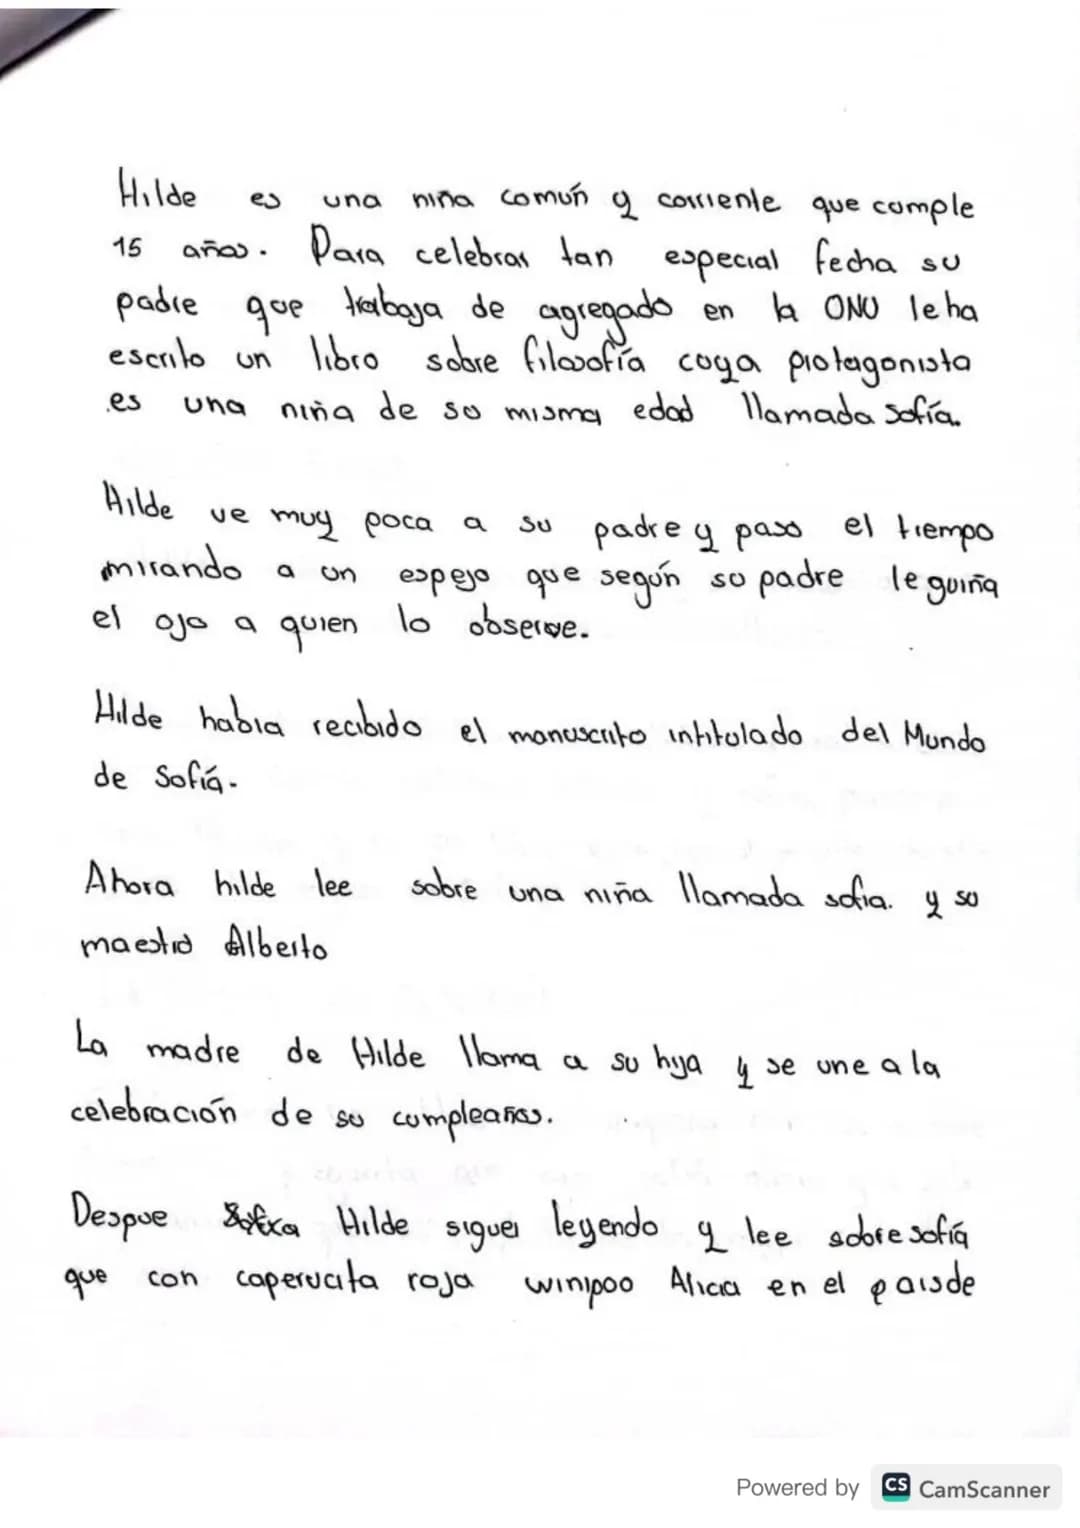 Hilde es una niña común y corriente que cumple
15 años. Para celebrar tan especial fecha su
padre que trabaja de agregado en la ONU le ha
escrito un libro sobre filosofía cuya protagonista
es una niña de su misma edad llamada Sofía.
Hilde ve muy poca a su padre y paso el tiempo
mirando a un espejo que según su padre le guiña
el ojo a quien lo observe.
Hilde había recibido el manuscrito intitulado del Mundo
de Sofía.
Ahora hilde lee sobre una niña llamada sofia. y su
maestro Alberto
La madre de Hilde llama a su hija y se une a la
celebración de su cumpleaños.
Despue Hilde siguer leyendo y lee sobre sofía
que con caperucita roja winipoo Alicia en el pais de
Powered by CS CamScanner